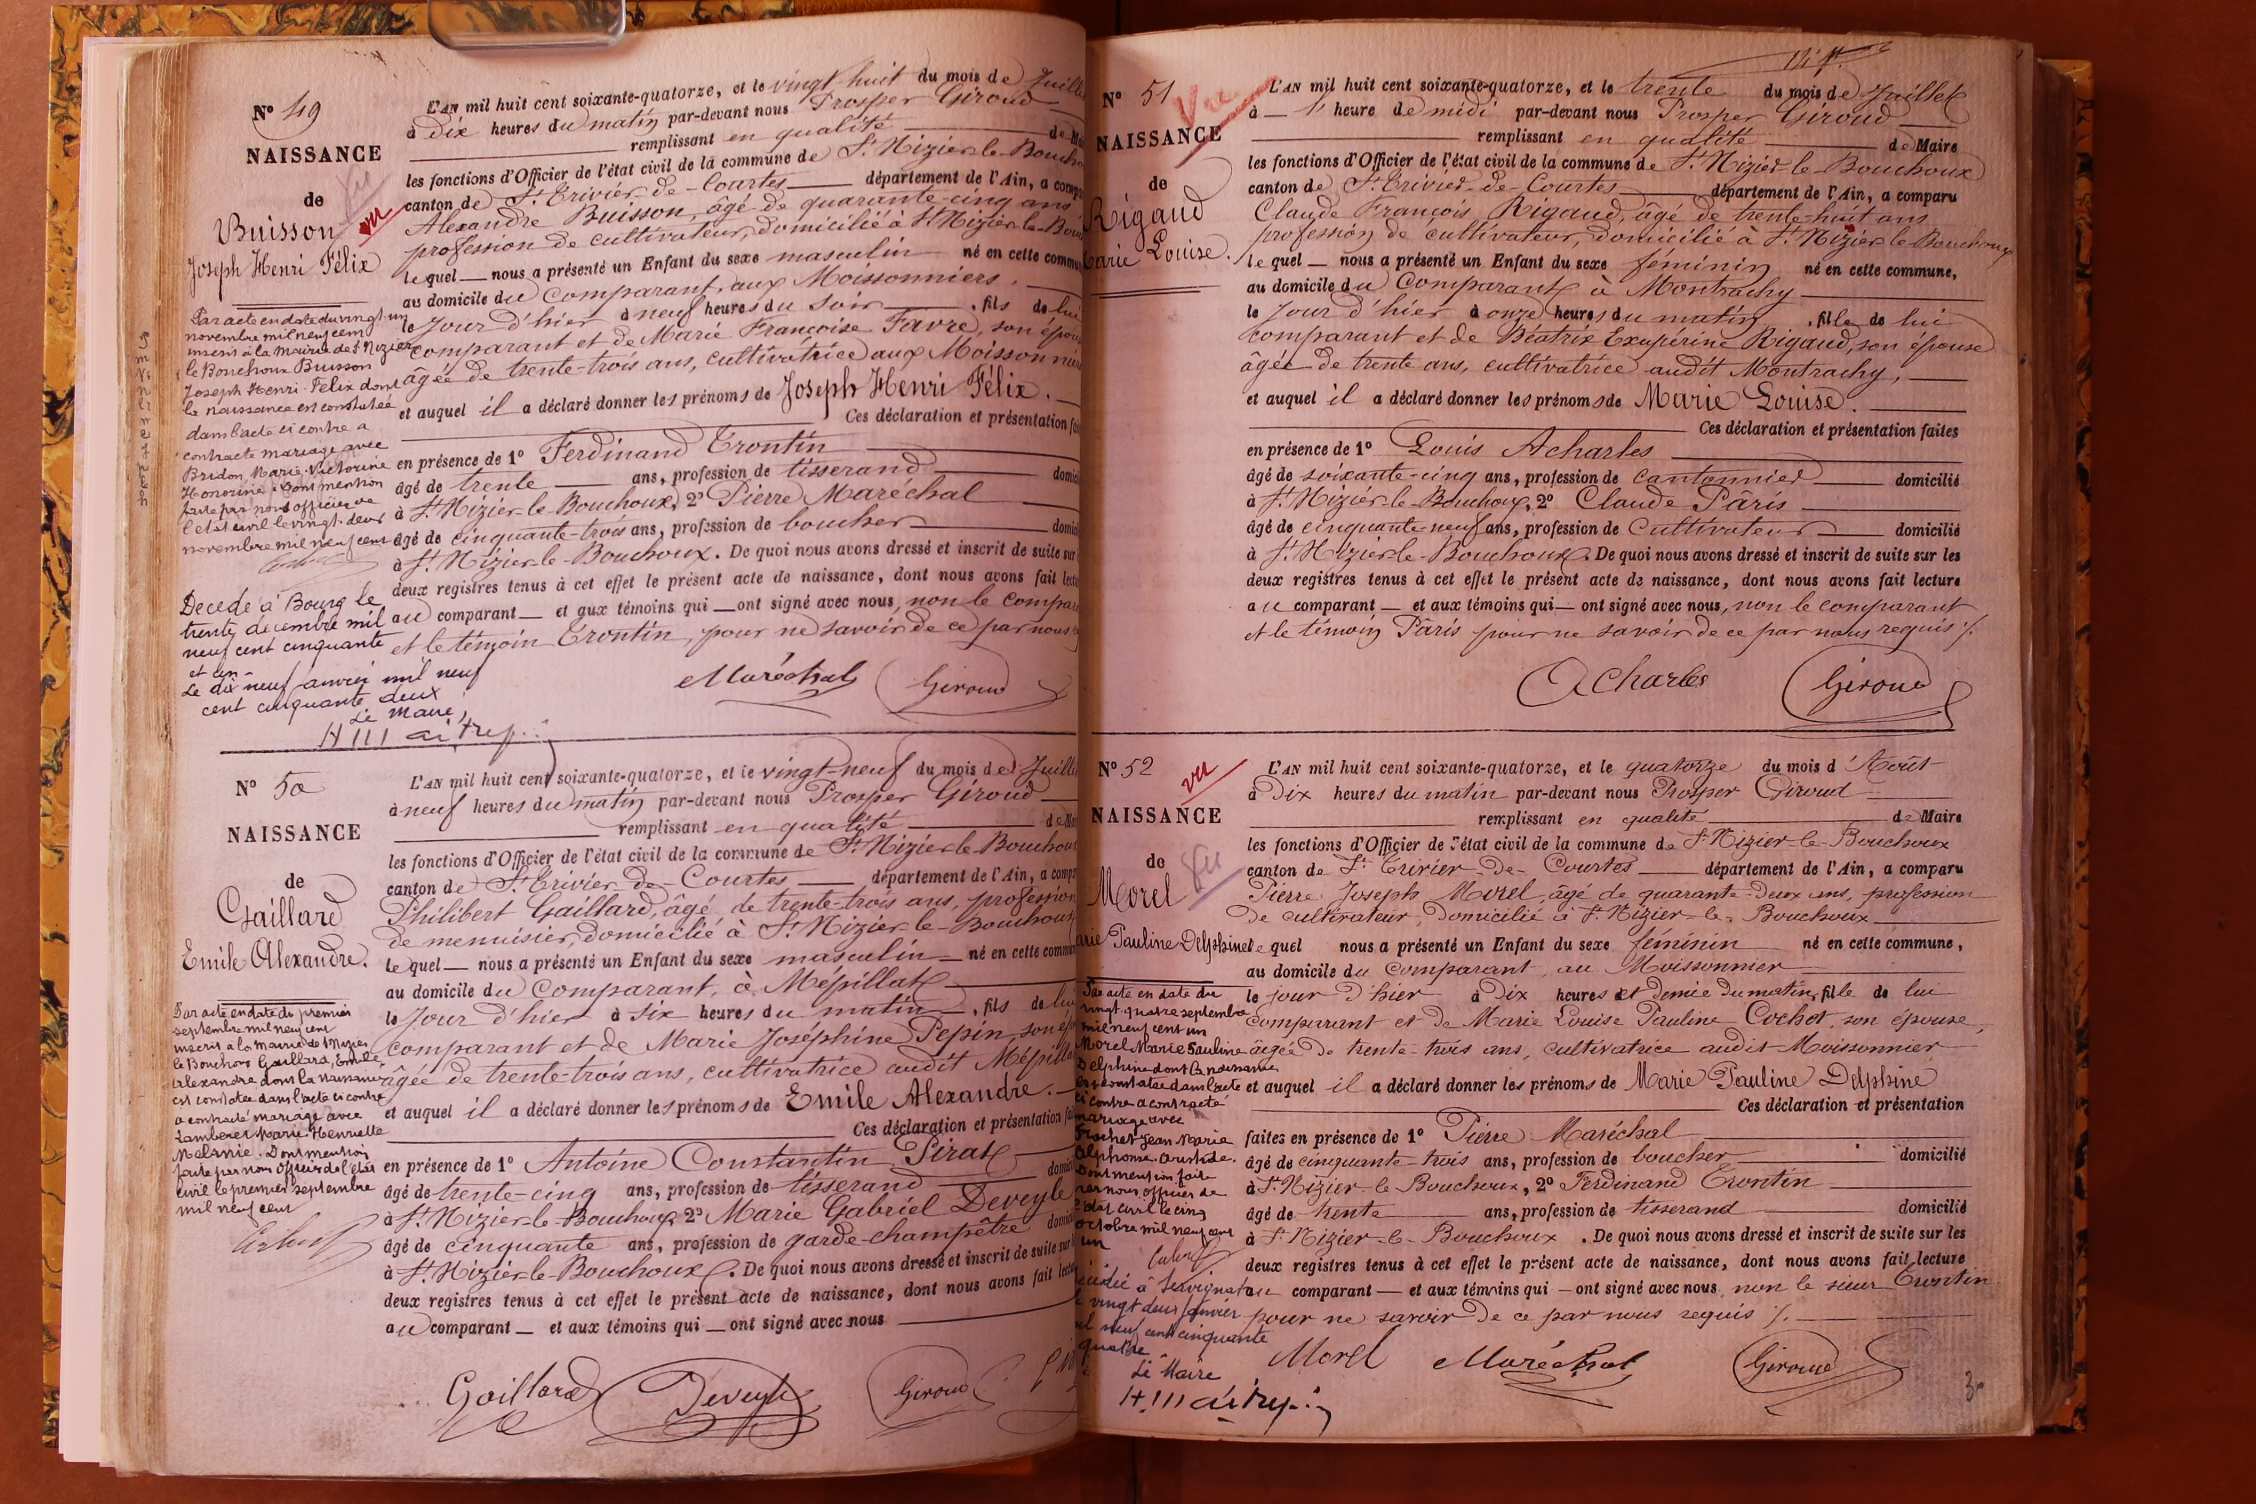 N° 49
NAISSANCE
de
Buisson
Joseph Henri Félix
vu
Par acte en date du vingt-un
novembre mil neuf cent
inscrit à la Mairie de St Nizier
le Bouchoux Buisson
Joseph Henri Félix dont
la naissance est constatée
dans l'acte ci contre a
contracté mariage avec
Bridon, Marie Victorine
Honorine. Dont mention
faite par nous officier de
l'état civil le vingt-deux
novembre mil neuf cent
Décédé à Bourg le
trente décembre mil
neuf cent cinquante
et un
Le dix-neuf janvier mil neuf
cent cinquante deux
Le Maire,
L'AN mil huit cent soixante-quatorze, et le vingt-huit du mois de Juillet
à dix heures du matin par-devant nous Prosper Giroud
remplissant en qualité de
les fonctions d'Officier de l'état civil de la commune de St Nizier-le-Boucho
canton de St Trivier-de-Courtes département de l'Ain, a comp
Alexandre Buisson, âgé de quarante-cinq ans
profession de cultivateur, domicilié à St Nizier-le-Bou
lequel nous a présenté un Enfant du sexe masculin né en cette commu
au domicile du comparant, aux Moissonniers.
le jour d'hier à neuf heures du soir, fils de lui
comparant et de Marie Françoise Favre, son épou
âgée de trente-trois ans, cultivatrice aux Moissonnier
et auquel il a déclaré donner les prénoms de Joseph Henri Félix.
Ces déclaration et présentation fai
en présence de 1° Ferdinand Trontin
âgé de trente ans, profession de tisserand domici
à St Nizier-le-Bouchoux, 2° Pierre Maréchal
âgé de cinquante-trois ans, profession de boucher domici
à St Nizier-le-Bouchoux. De quoi nous avons dressé et inscrit de suite sur
deux registres tenus à cet effet le présent acte de naissance, dont nous avons fait lectu
au comparant et aux témoins qui ont signé avec nous, non le compar
et le témoin Trontin, pour ne savoir de ce par nous
Maréchal Giroud
N° 50
NAISSANCE
de
Gaillard
Emile Alexandre.
Par acte en date du premier
septembre mil neuf cent
inscrit à la Mairie de St Nizier
le Bouchoux Gaillard, Emile
Alexandre dont la naissance
est constatée dans l'acte ci contre
a contracté mariage avec
Marie Henriette
Mélanie. Dont mention
faite par nous officier de l'état
civil le premier septembre
mil neuf cent
L'AN mil huit cent soixante-quatorze, et le vingt-neuf du mois de Juille
à neuf heures du matin par-devant nous Prosper Giroud
remplissant en qualité de
les fonctions d'Officier de l'état civil de la commune de St Nizier-le-Bouchoux
canton de St Trivier-de-Courtes département de l'Ain, a comp
Philibert Gaillard, âgé de trente-trois ans, profession
de menuisier, domicilié à St Nizier-le-Bouchoux
lequel nous a présenté un Enfant du sexe masculin né en cette commu
au domicile du comparant, à Mépillat
le jour d'hier à six heures du matin, fils de lui
comparant et de Marie Joséphine Pepin, son ép
âgée de trente-trois ans, cultivatrice audit Mépilla
et auquel il a déclaré donner les prénoms de Emile Alexandre.
Ces déclaration et présentation fai
en présence de 1° Antoine Constantin Pirat
âgé de trente-cinq ans, profession de tisserand domici
à St Nizier-le-Bouchoux, 2° Marie Gabriel Deveyle
âgé de cinquante ans, profession de garde-champêtre domici
à St Nizier-le-Bouchoux. De quoi nous avons dressé et inscrit de suite sur
deux registres tenus à cet effet le présent acte de naissance, dont nous avons fait lectu
au comparant et aux témoins qui ont signé avec nous
Gaillard Deveyle Giroud
N° 51
Vu
NAISSANCE
de
Rigaud
Marie Louise.
L'AN mil huit cent soixante-quatorze, et le trente du mois de Juillet
à 1 heure de midi par-devant nous Prosper Giroud
remplissant en qualité de Maire
les fonctions d'Officier de l'état civil de la commune de St Nizier-le-Bouchoux
canton de St Trivier-de-Courtes département de l'Ain, a comparu
Claude François Rigaud, âgé de trente-huit ans
profession de cultivateur, domicilié à St Nizier-le-Bouchoux
lequel nous a présenté un Enfant du sexe féminin né en cette commune,
au domicile du comparant à Montrachy
le jour d'hier à onze heures du matin, fille de lui
comparant et de Béatrix Exupérine Rigaud, son épouse
âgée de trente ans, cultivatrice audit Montrachy,
et auquel il a déclaré donner les prénoms de Marie Louise.
Ces déclaration et présentation faites
en présence de 1° Louis Acharles
âgé de soixante-cinq ans, profession de cantonnier domicilié
à St Nizier-le-Bouchoux, 2° Claude Pâris
âgé de cinquante-neuf ans, profession de cultivateur domicilié
à St Nizier-le-Bouchoux. De quoi nous avons dressé et inscrit de suite sur les
deux registres tenus à cet effet le présent acte de naissance, dont nous avons fait lecture
au comparant et aux témoins qui ont signé avec nous, non le comparant
et le témoin Pâris pour ne savoir de ce par nous requis ./.
Acharles Giroud
N° 52
vu
NAISSANCE
de
Vu
Morel
arie Pauline Delphine
Par acte en date du
vingt quatre septembre
mil neuf cent un
Morel Marie Pauline
Delphine dont la naissance
est constatée dans l'acte
ci contre a contracté
mariage avec
Jean Marie
Alphonse Aristide.
Dont mention faite
par nous officier de
l'état civil le cinq
octobre mil neuf cent
un
à Servignat
vingt deux janvier
mil neuf cent cinquante
quatre
Le Maire
L'AN mil huit cent soixante-quatorze, et le quatorze du mois d'Août
à dix heures du matin par-devant nous Prosper Giroud
remplissant en qualité de Maire
les fonctions d'Officier de l'état civil de la commune de St Nizier-le-Bouchoux
canton de St Trivier-de-Courtes département de l'Ain, a comparu
Pierre Joseph Morel, âgé de quarante-deux ans, profession
de cultivateur, domicilié à St Nizier-le-Bouchoux
lequel nous a présenté un Enfant du sexe féminin né en cette commune,
au domicile du comparant, au Moissonnier
le jour d'hier à dix heures et demie du matin, fille de lui
comparant et de Marie Louise Pauline Cochet, son épouse,
âgée de trente-trois ans, cultivatrice audit Moissonnier
et auquel il a déclaré donner les prénoms de Marie Pauline Delphine
Ces déclaration et présentation
faites en présence de 1° Pierre Maréchal
âgé de cinquante-trois ans, profession de boucher domicilié
à St Nizier-le-Bouchoux, 2° Ferdinand Trontin
âgé de trente ans, profession de tisserand domicilié
à St Nizier-le-Bouchoux. De quoi nous avons dressé et inscrit de suite sur les
deux registres tenus à cet effet le présent acte de naissance, dont nous avons fait lecture
au comparant et aux témoins qui ont signé avec nous non le sieur Trontin
pour ne savoir de ce par nous requis ./.
Morel Maréchal Giroud